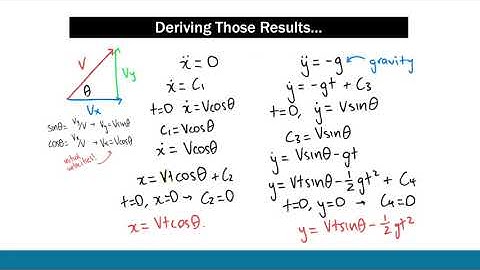 Deriving Those Results...
V
Vy
θ
Vx
sinθ = Vy/V → Vy = Vsinθ
cosθ = Vx/V → Vx = Vcosθ
initial velocities!
ẍ = 0
ẋ = C₁
t=0 ẋ = Vcosθ
C₁ = Vcosθ
ẋ = Vcosθ
x = Vtcosθ + C₂
t=0, x=0 → C₂=0
x = Vtcosθ.
ÿ = -g ← gravity
ẏ = -gt + C₃
t=0, ẏ = Vsinθ
C₃ = Vsinθ
ẏ = Vsinθ - gt
y = Vtsinθ - ½gt² + C₄
t=0, y=0 → C₄=0
y = Vtsinθ - ½gt²